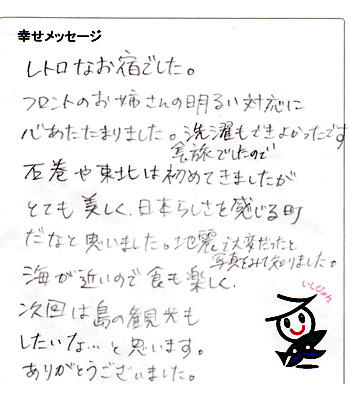 幸せメッセージ
レトロなお宿でした。
フロントのお姉さんの明るい対応に
心あたたまりました。洗濯もできよかったです
長旅でしたので
石巻や東北は初めてきましたが
とても美しく、日本らしさを感じる町
だなと思いました。地震で大変だったと
写真をみて知りました。
海が近いので食も楽しく、
次回は島の観光も
したいな…と思います。
ありがとうございました。